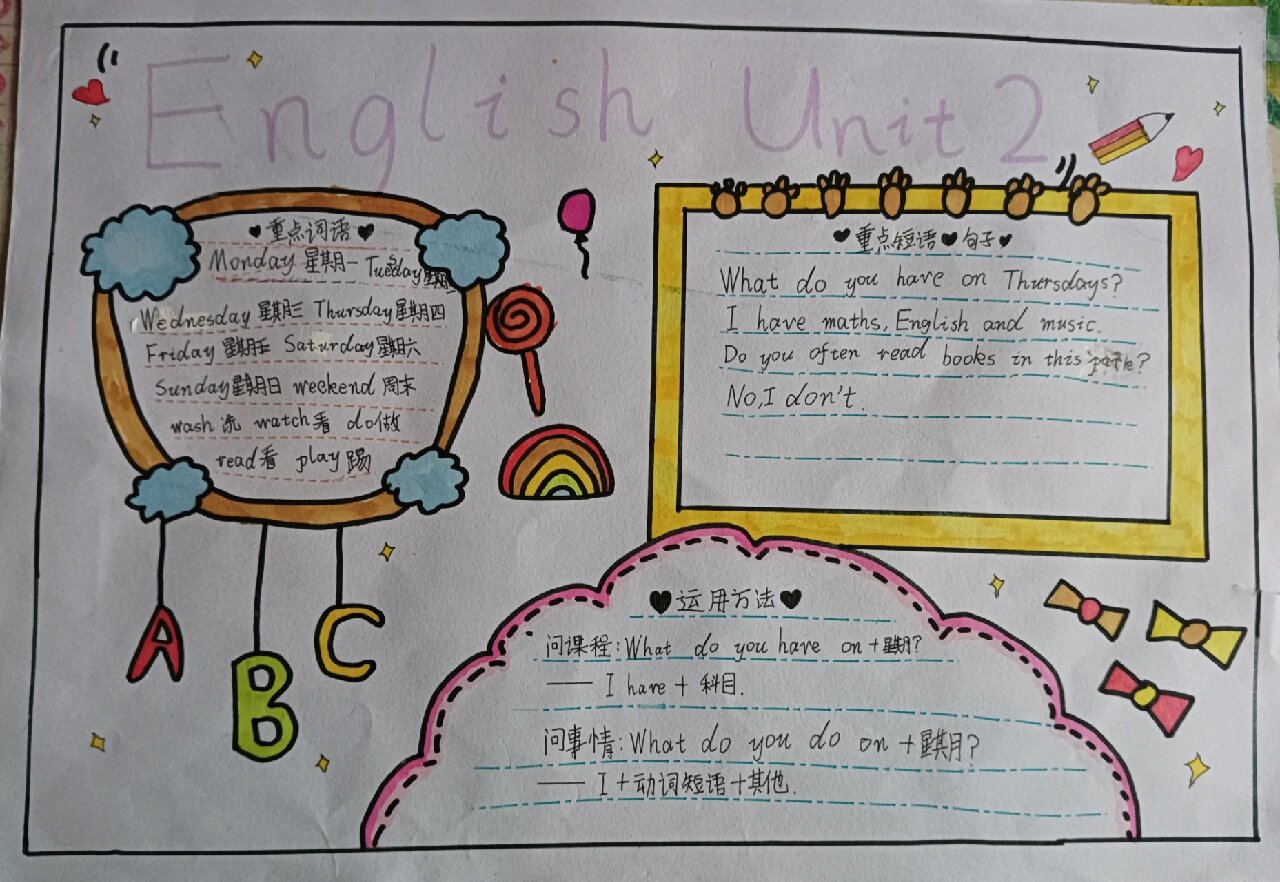 English Unit 2
重点词语
Monday 星期一 Tuesday 星期
Wednesday 星期三 Thursday 星期四
Friday 星期五 Saturday 星期六
Sunday 星期日 weekend 周末
wash 洗 watch 看 do 做
read 看 play 踢
A B C
重点短语 句子
What do you have on Thursdays?
I have maths, English and music.
Do you often read books in this ?
No, I don't.
运用方法
问课程: What do you have on + 星期?
—— I have + 科目.
问事情: What do you do on + 星期?
—— I + 动词短语 + 其他.